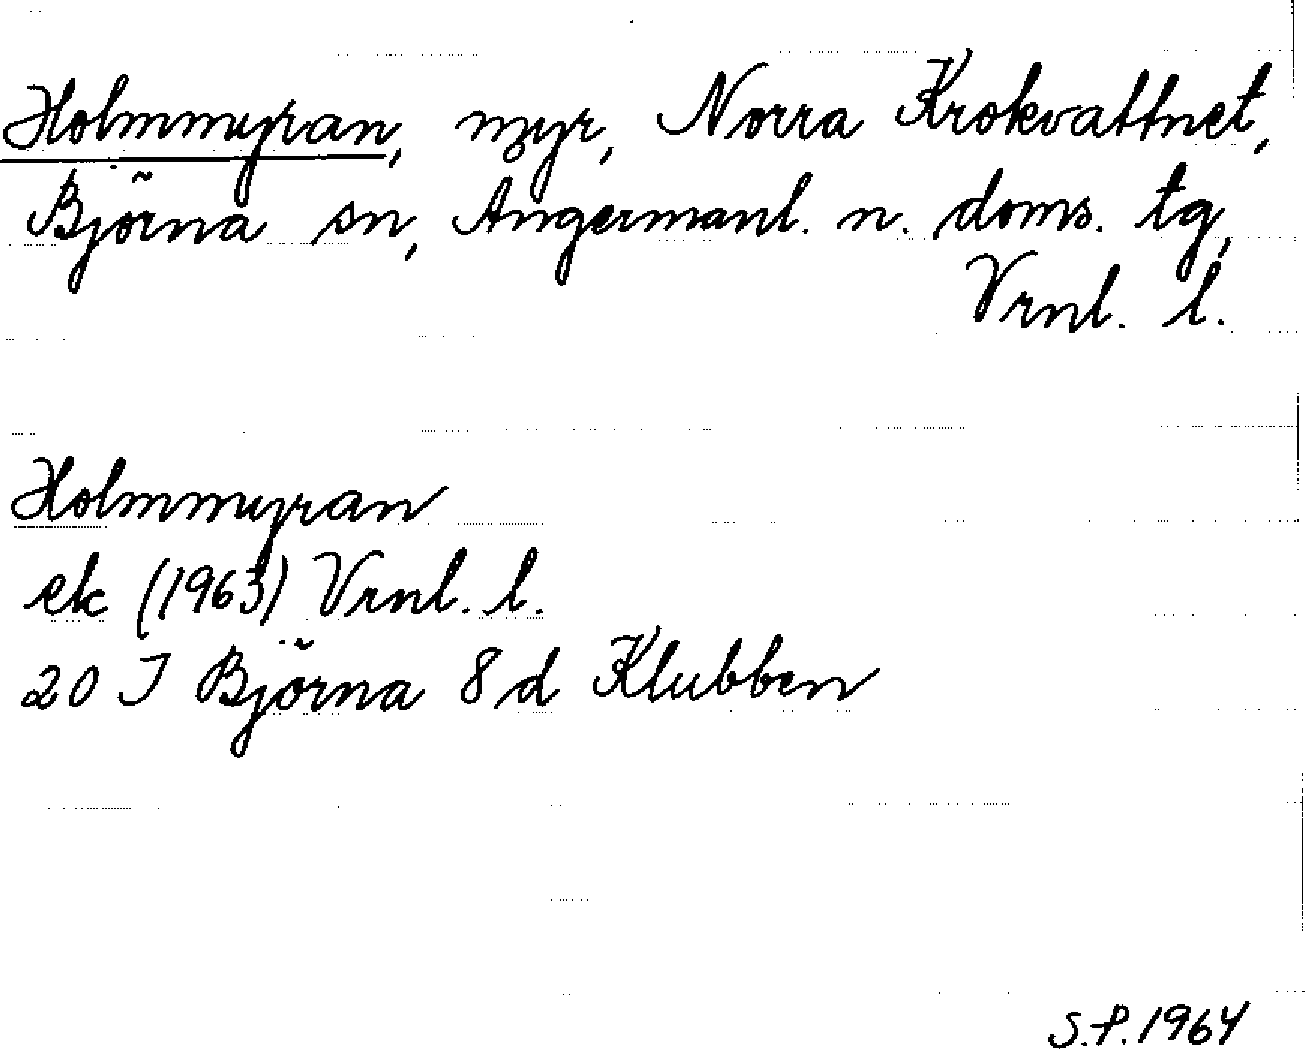 Holmmyran, myr, Norra Krokvattnet,
Björna sn, Angermanl. n. doms. tg,
Vrnl. l.
Holmmyran
ek (1963) Vrnl. l.
20 I Björna 8 d Klubben
S.P. 1964